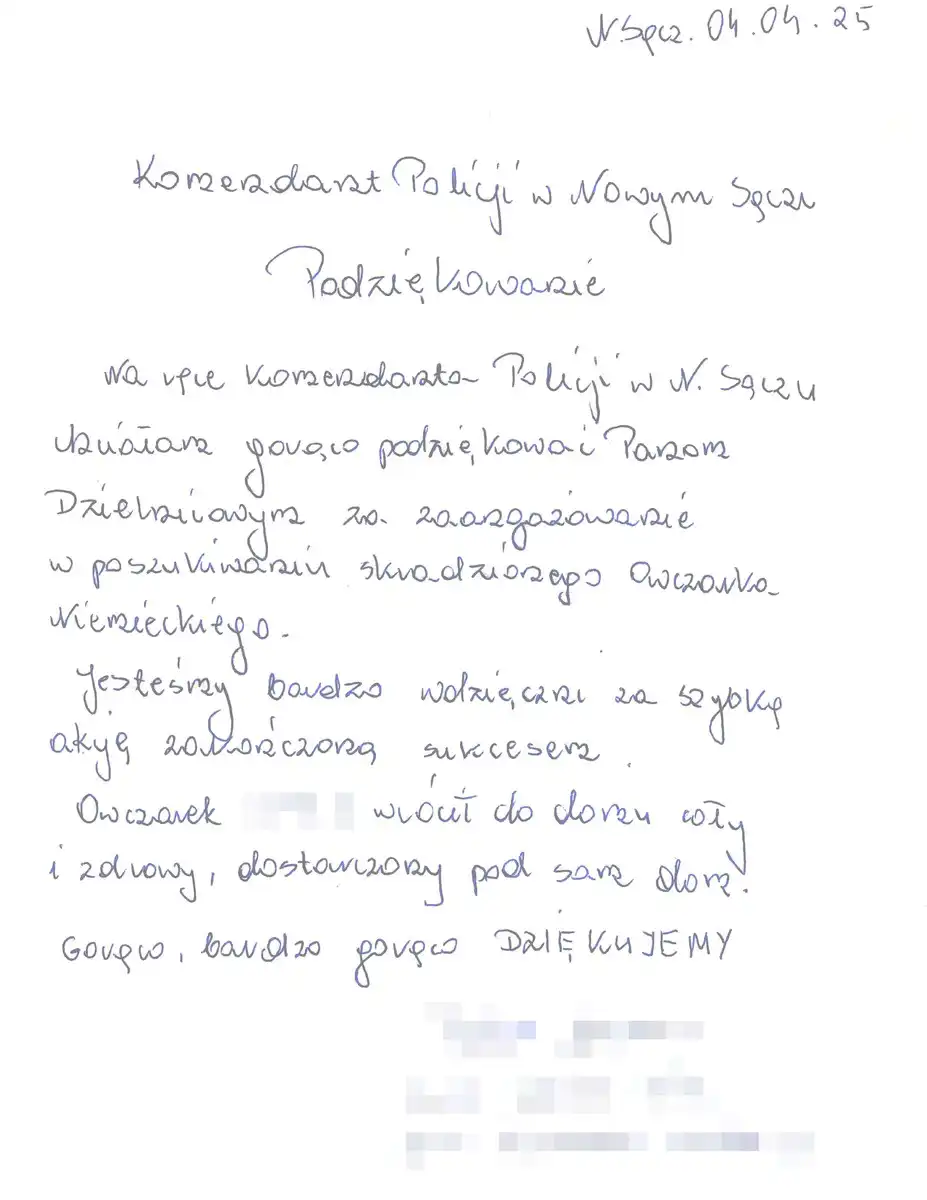 N.Sącz. 04.04.25
Komendant Policji w Nowym Sączu
Podziękowanie
Na ręce Komendanta Policji w N. Sączu
chciałam gorąco podziękować Panom
Dzielnicowym za zaangażowanie
w poszukiwaniu skradzionego Owczarka
Niemieckiego.
Jesteśmy bardzo wdzięczni za szybką
akcję zakończoną sukcesem.
Owczarek wrócił do domu cały
i zdrowy, dostarczony pod sam dom.
Gorąco, bardzo gorąco DZIĘKUJEMY